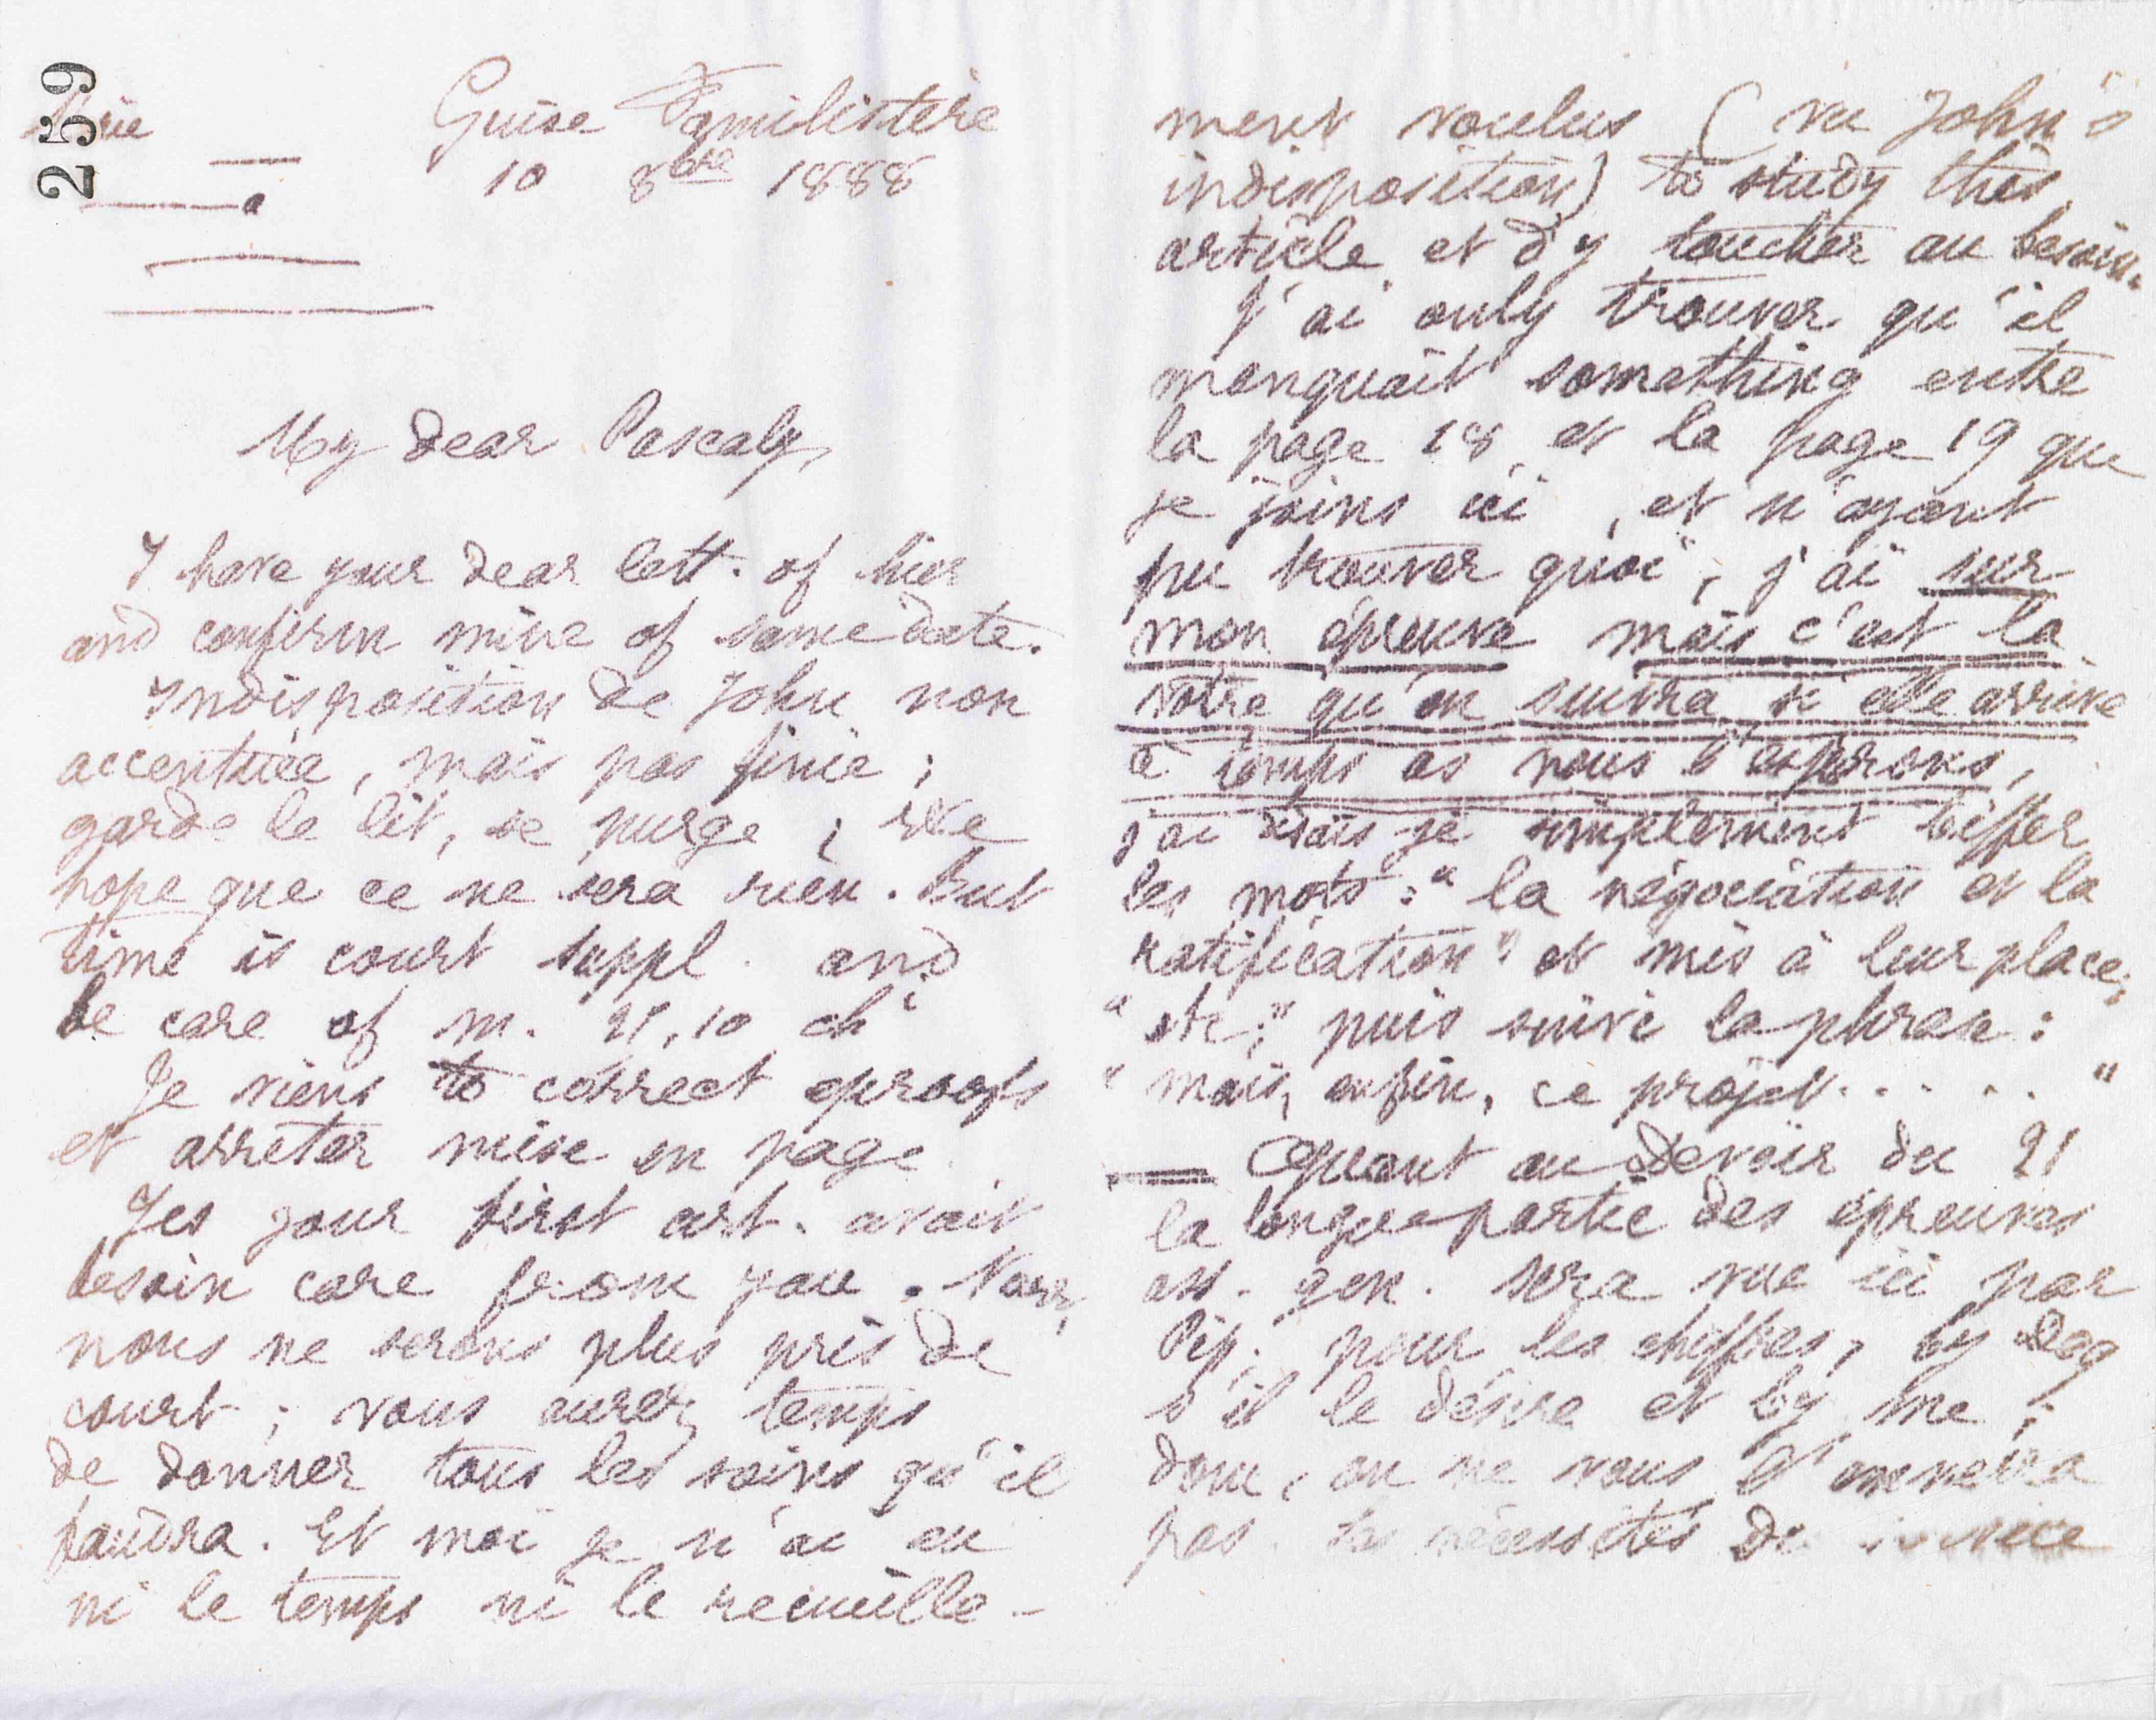 259
Guise Familistère
10 8bre 1888
My dear Pascaly,
I have your dear lett. of hier
and confirm mine of same date.
Indisposition de John non
accentuée, mais pas finie ;
garde le lit, se purge ; We
hope que ce ne sera rien. But
time is court suppl. and
be care of m.
Je viens to correct eproofs
et arrêter mise en page.
Yes your first art. avait
besoin care from you. Now,
nous ne serons plus pris de
court ; vous aurez temps
de donner tous les soins qu'il
faudra. Et moi je n'ai eu
ni le temps ni le recueille-
ment voulus (vu John's
indisposition) to study this
article et d'y toucher au besoin.
J'ai only trouver qu'il
manquait something entre
la page 18 et la page 19 que
je joins ici, et n'ayant
pu trouver quoi, j'ai sur
mon épreuve mais c'est la
vôtre qu'on suivra si elle arrive
à temps as nous l'espérons,
j'ai dis-je simplement biffer
les mots : "la négociation et la
ratification" et mis à leur place,
"etc," puis suivi la phrase :
"mais, enfin, ce projet . . . . "
Quant au Devoir du 21
la longue partie des épreuves
ass. gen. sera vue ici par
Pip. pour les chiffres, by Deq
s'il le désire et by me ;
donc, on ne vous l'enverra
pas. les nécessités de service